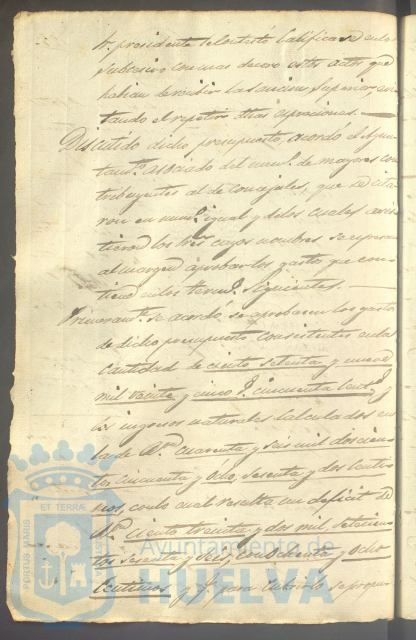 Sr. presidente le contestó calificase en lo
subcesivo con mas decoro estos actos que
habian de recibir la sancion Superior, evi-
tando el repetir tales espresiones.
Discutido dicho presupuesto, acordó el Ayun-
tamto. asociado del numo. de mayores con
tribuyentes al de concejales, que se cita-
ron en numo. igual y de los cuales asis-
tieron los tres cuyos nombres se espresan
al margen aprobar los gastos que con-
tiene en los termos. siguientes.
Primeramte. se acordó se aprobasen los gastos
de dicho presupuesto consistentes en la
cantidad de ciento setenta y nueve
mil veinte y cinco rs. cincuenta cents. y
los ingresos naturales calculados en
la de Rs. cuarenta y seis mil doscien-
tos cincuenta y ocho, sesenta y dos centi-
mos, con lo cual resulta un deficit de
Rs. ciento treinta y dos mil setecien-
tos sesenta y seis, con ochenta y ocho
centimos y qe. para cubrirlo se propu-
PORTUS MARIS
ET TERRAE
CUSTODIA
Ayuntamiento de
HUELVA